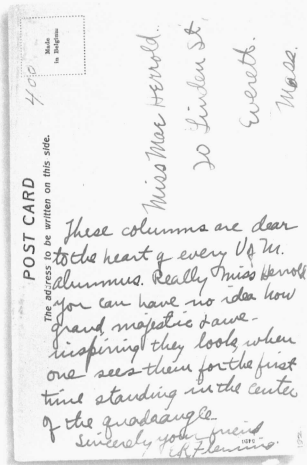 POST CARD
The address to be written on this side.
Made
in Belgium
400
Miss Mae Herrold.
20 Linden St.
Everett.
Mass.
These columns are dear
to the heart of every U of M.
alumnus. Really Miss Herrold
you can have no idea how
grand, majestic & awe-
inspiring they look, when
one sees them for the first
time standing in the center
of the quadrangle
Sincerely your friend
Fleming.